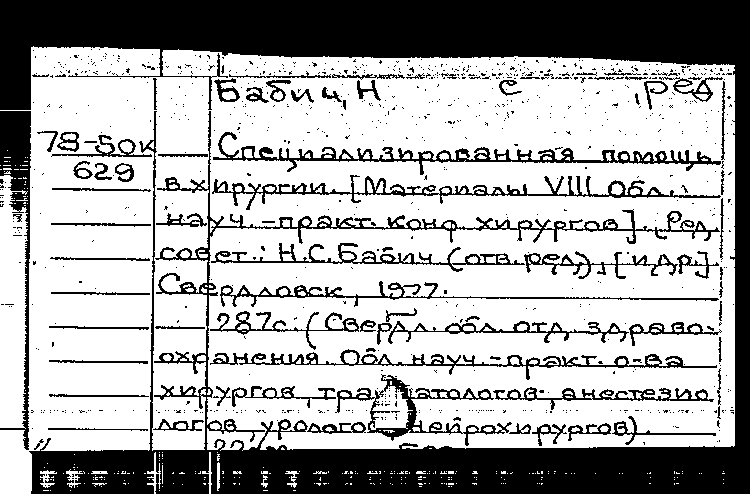 Бабич, Н с , ред
78-50к Специализированная помощь
629
в хирургии. [Материалы VIII Обл.
науч.-практ. конф. хирургов]. [Ред.
совет.: Н.С. Бабич (отв. ред), [и др.].
Свердловск, 1977.
287с. (Свердл. обл. отд. здраво-
охранения. Обл. науч.-практ. о-ва
хирургов, анестезио
логов, нейрохирургов).